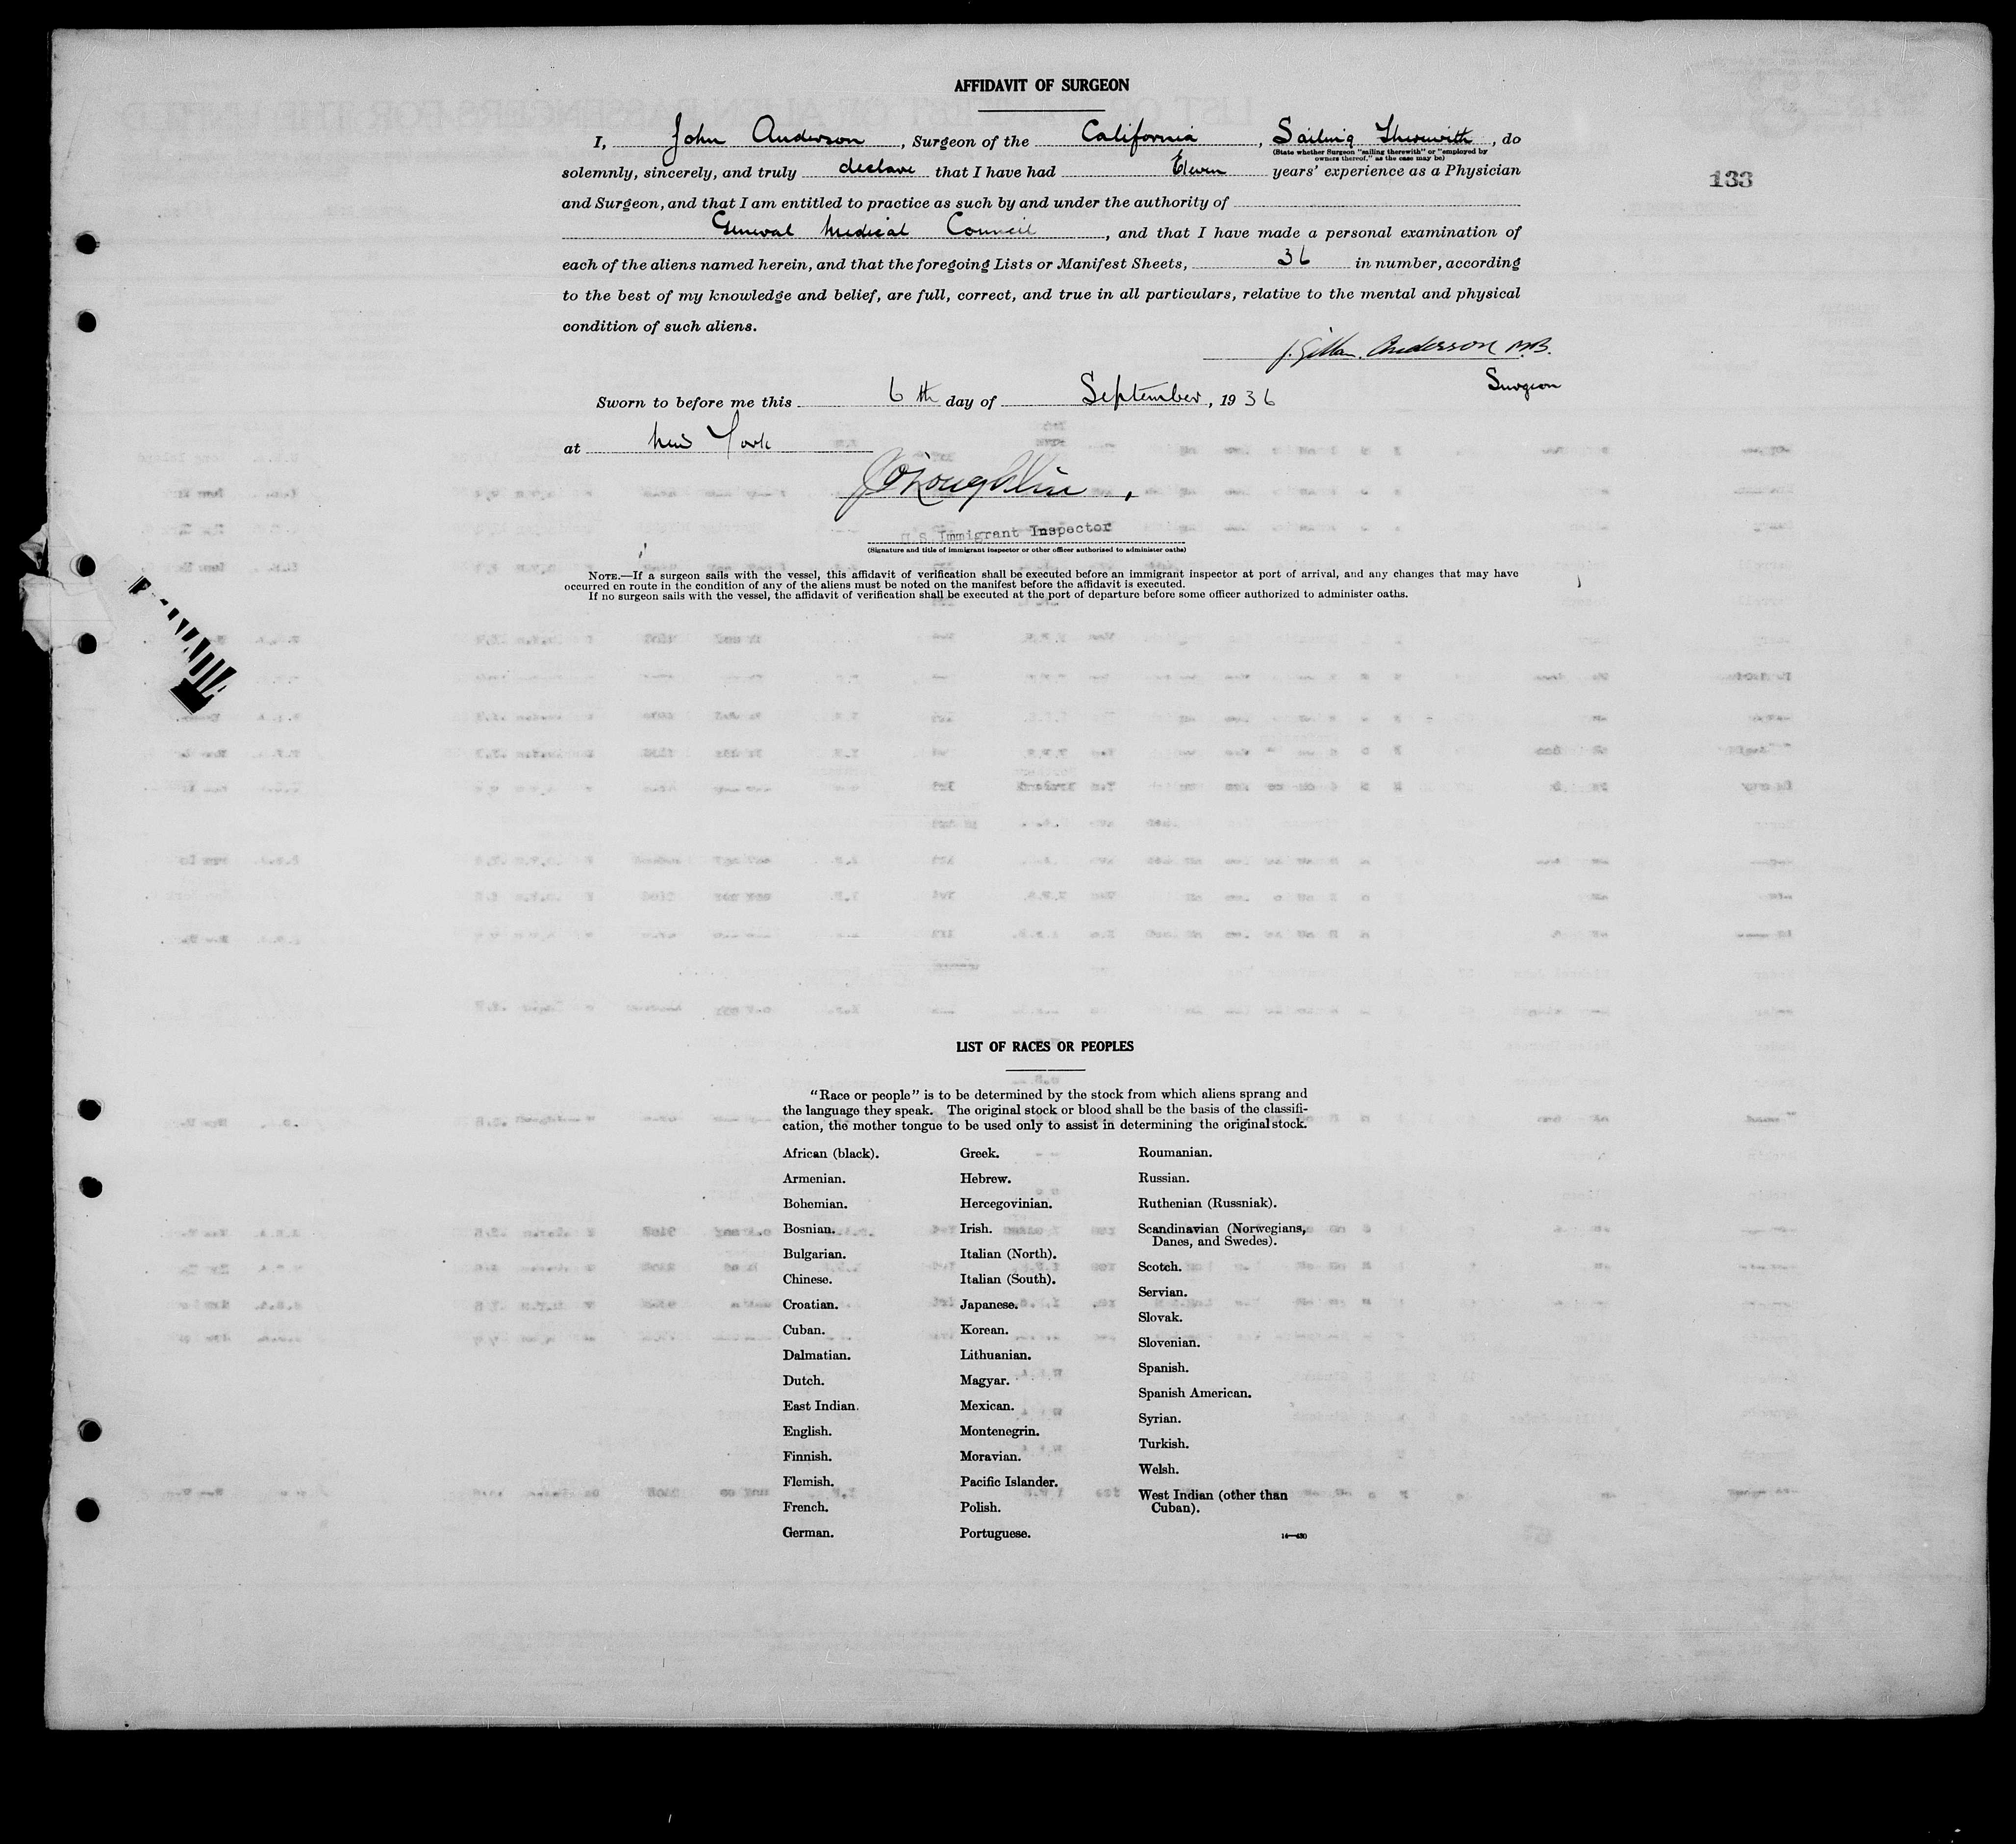 AFFIDAVIT OF SURGEON
I, John Anderson, Surgeon of the California, Sailing Therewith, do
(State whether Surgeon "sailing therewith" or "employed by
owners thereof," as the case may be)
133
solemnly, sincerely, and truly declare that I have had Eleven years' experience as a Physician
and Surgeon, and that I am entitled to practice as such by and under the authority of
General Medical Council, and that I have made a personal examination of
each of the aliens named herein, and that the foregoing Lists or Manifest Sheets, 36 in number, according
to the best of my knowledge and belief, are full, correct, and true in all particulars, relative to the mental and physical
condition of such aliens.
J. Anderson M.B.
Surgeon
Sworn to before me this 6th day of September, 1936
at New York
J O'Loughlin
U.S. Immigrant Inspector
(Signature and title of immigrant inspector or other officer authorized to administer oaths)
NOTE.—If a surgeon sails with the vessel, this affidavit of verification shall be executed before an immigrant inspector at port of arrival, and any changes that may have
occurred en route in the condition of any of the aliens must be noted on the manifest before the affidavit is executed.
If no surgeon sails with the vessel, the affidavit of verification shall be executed at the port of departure before some officer authorized to administer oaths.
LIST OF RACES OR PEOPLES
"Race or people" is to be determined by the stock from which aliens sprang and
the language they speak. The original stock or blood shall be the basis of the classifi-
cation, the mother tongue to be used only to assist in determining the original stock.
African (black).
Armenian.
Bohemian.
Bosnian.
Bulgarian.
Chinese.
Croatian.
Cuban.
Dalmatian.
Dutch.
East Indian.
English.
Finnish.
Flemish.
French.
German.
Greek.
Hebrew.
Hercegovinian.
Irish.
Italian (North).
Italian (South).
Japanese.
Korean.
Lithuanian.
Magyar.
Mexican.
Montenegrin.
Moravian.
Pacific Islander.
Polish.
Portuguese.
Roumanian.
Russian.
Ruthenian (Russniak).
Scandinavian (Norwegians,
Danes, and Swedes).
Scotch.
Servian.
Slovak.
Slovenian.
Spanish.
Spanish American.
Syrian.
Turkish.
Welsh.
West Indian (other than
Cuban).
14—430